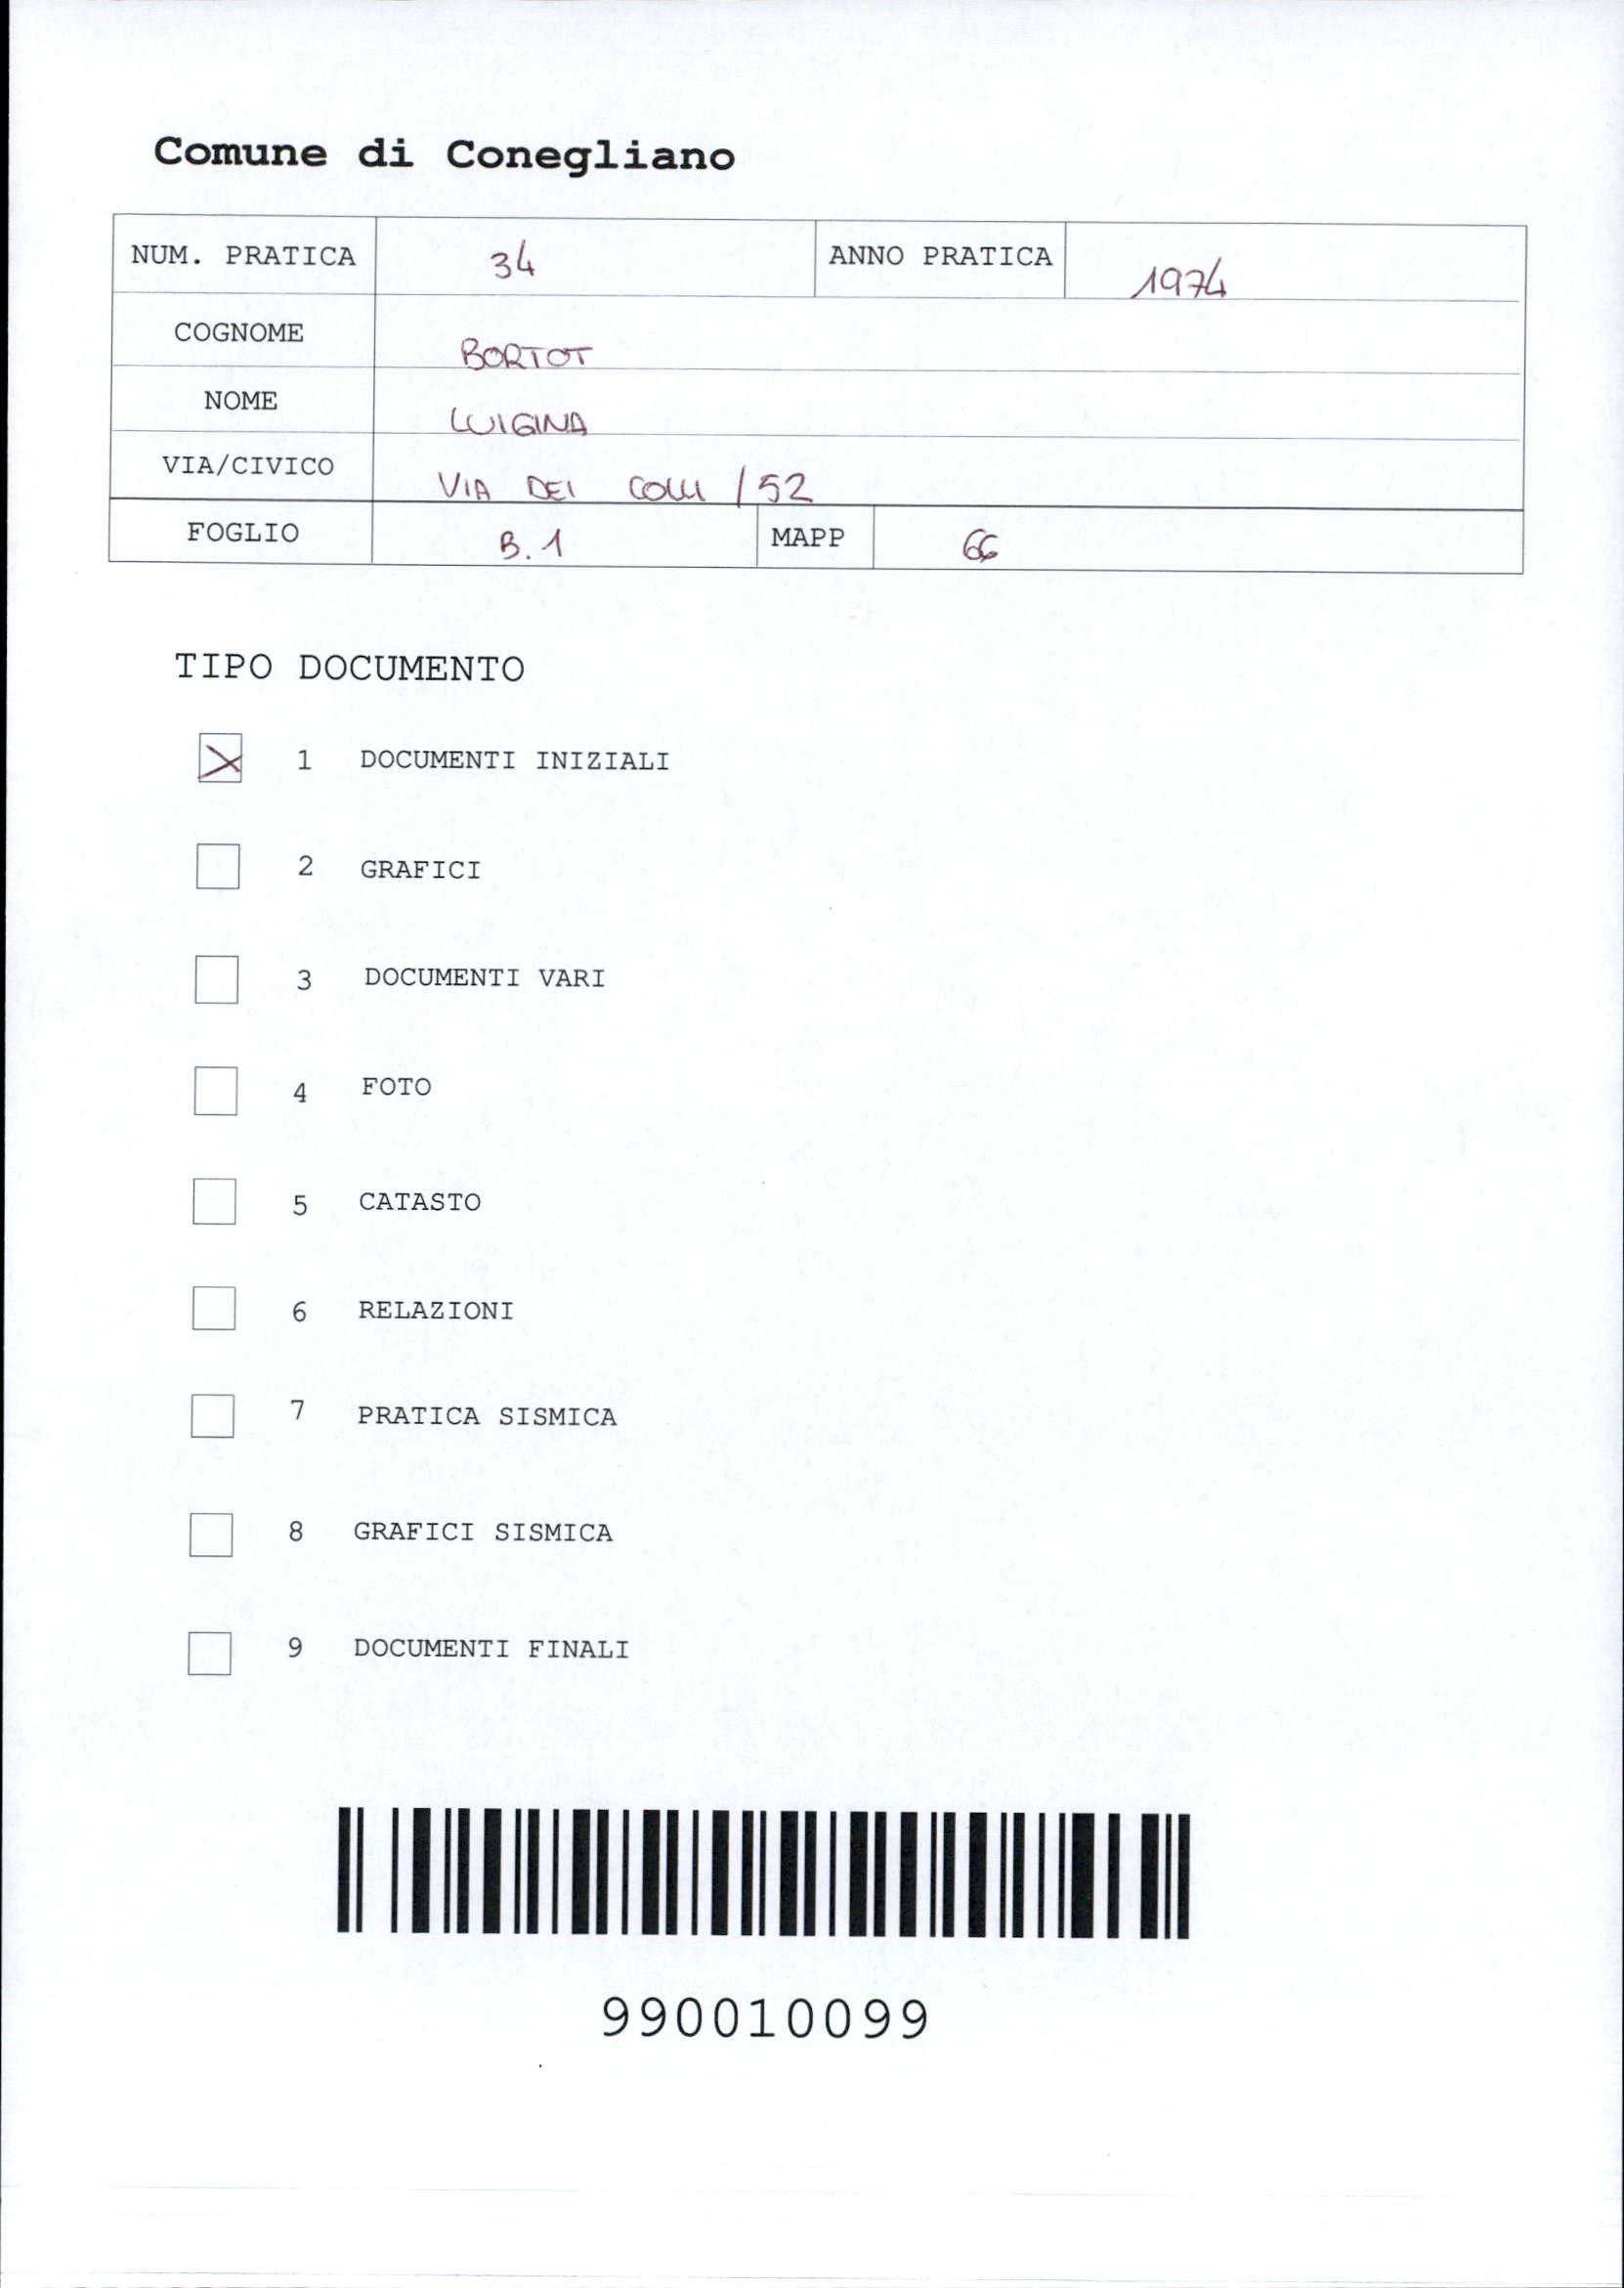 Comune di Conegliano
NUM. PRATICA 34 ANNO PRATICA 1974
COGNOME BORTOT
NOME LUIGINA
VIA/CIVICO VIA DEI COLLI /52
FOGLIO B.1 MAPP 66
TIPO DOCUMENTO
1 DOCUMENTI INIZIALI
2 GRAFICI
3 DOCUMENTI VARI
4 FOTO
5 CATASTO
6 RELAZIONI
7 PRATICA SISMICA
8 GRAFICI SISMICA
9 DOCUMENTI FINALI
990010099